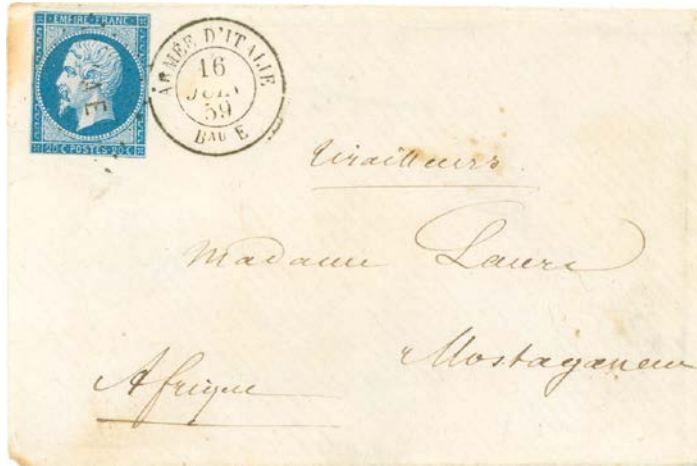 EMPIRE FRANC.
AE
20 C POSTES 20 C
ARMÉE D'ITALIE
16
JUIN
59
BAU E
Tirailleurs
Madame Laure
Mostaganem
Afrique